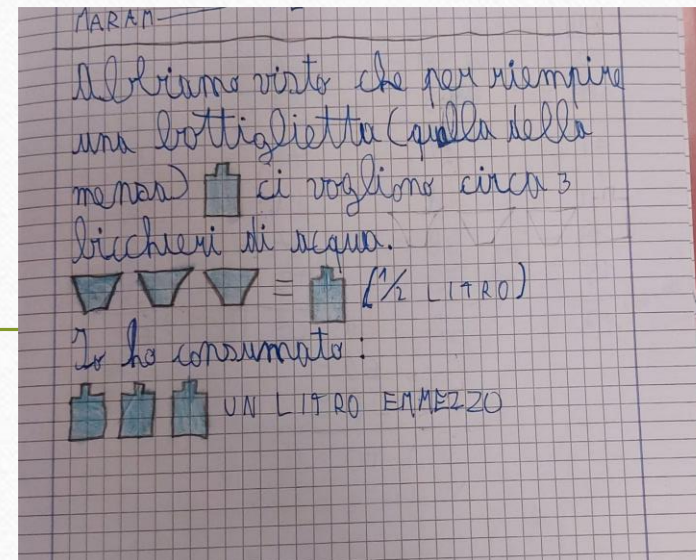 MARAM
Abbiamo visto che per riempire
una bottiglietta (quella della
mensa) ci vogliono circa 3
bicchieri di acqua.
= (1/2 LITRO)
Io ho consumato:
UN LITRO EMMEZZO